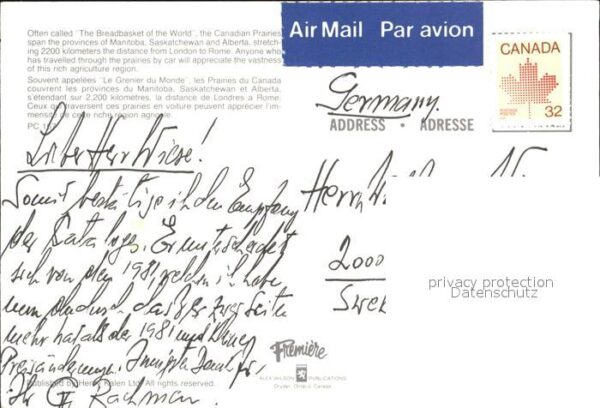 Often called "The Breadbasket of the World", the Canadian Prairies
span the provinces of Manitoba, Saskatchewan and Alberta, stretch-
ing 2200 kilometers the distance from London to Rome. Anyone who
has travelled through the prairies by car will appreciate the vastness
of this rich agriculture region.
Souvent appelées "Le Grenier du Monde", les Prairies du Canada
couvrent les provinces du Manitoba, Saskatchewan et Alberta,
s'étendant sur 2,200 kilomètres, la distance de Londres a Rome.
Ceux qui traversent ces prairies en voiture peuvent apprécier l'im-
mensité de cette riche région agricole.
PC
Air Mail Par avion
CANADA
32
Germany.
ADDRESS • ADRESSE
Lieber Herr Wiese!
Somit bestätige ich den Empfang
der Kataloge. Er unterscheidet
sich von dem 1981, welchen ich habe
nur dadurch, dass er zwei Seiten
mehr hat als der 1981 und kleine
Preisänderungen. Innigsten Dank für
Ihr Rachman
Herrn
2000
privacy protection
Datenschutz
Première
ALEX WILSON PUBLICATIONS
Dryden, Ontario, Canada
Published by Henry Kalen Ltd. All rights reserved.